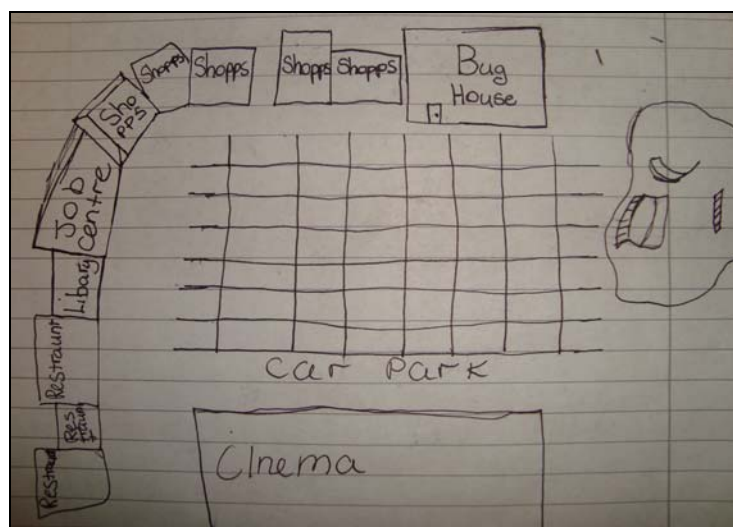 Shopps
Shopps
Shopps
Shopps
Bug
House
Sho
pps
Job
Centre
Libary
Restraunt
Res
traun
t
Restraunt
Car Park
Cinema